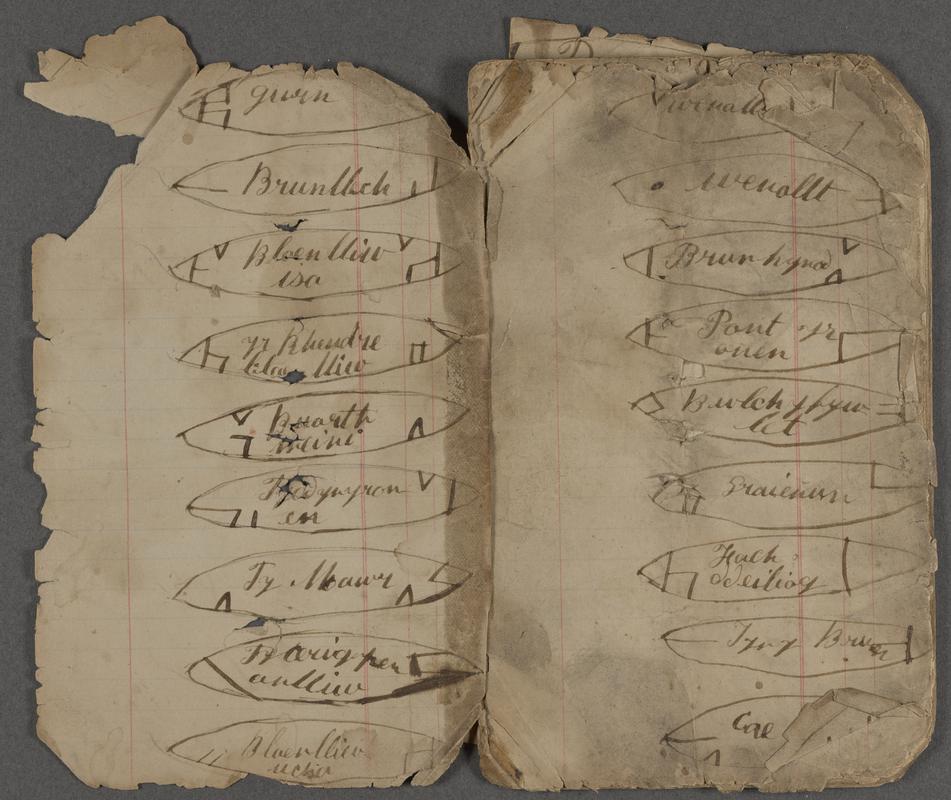 gwyn
Brunllech
Blaenlliw
isa
yr Rhendre
blaenlliw
Buarth
meini
Tyddynyron
en
Ty Mawr
Ty Cerigpen
anlliw
Blaenlliw
ucha
wenallt
wenallt
Bryn hynod
Pont yr
onen
Bwlch
let
Graienyn
Hach
ddeiliog
Tyny Bryn
Cae